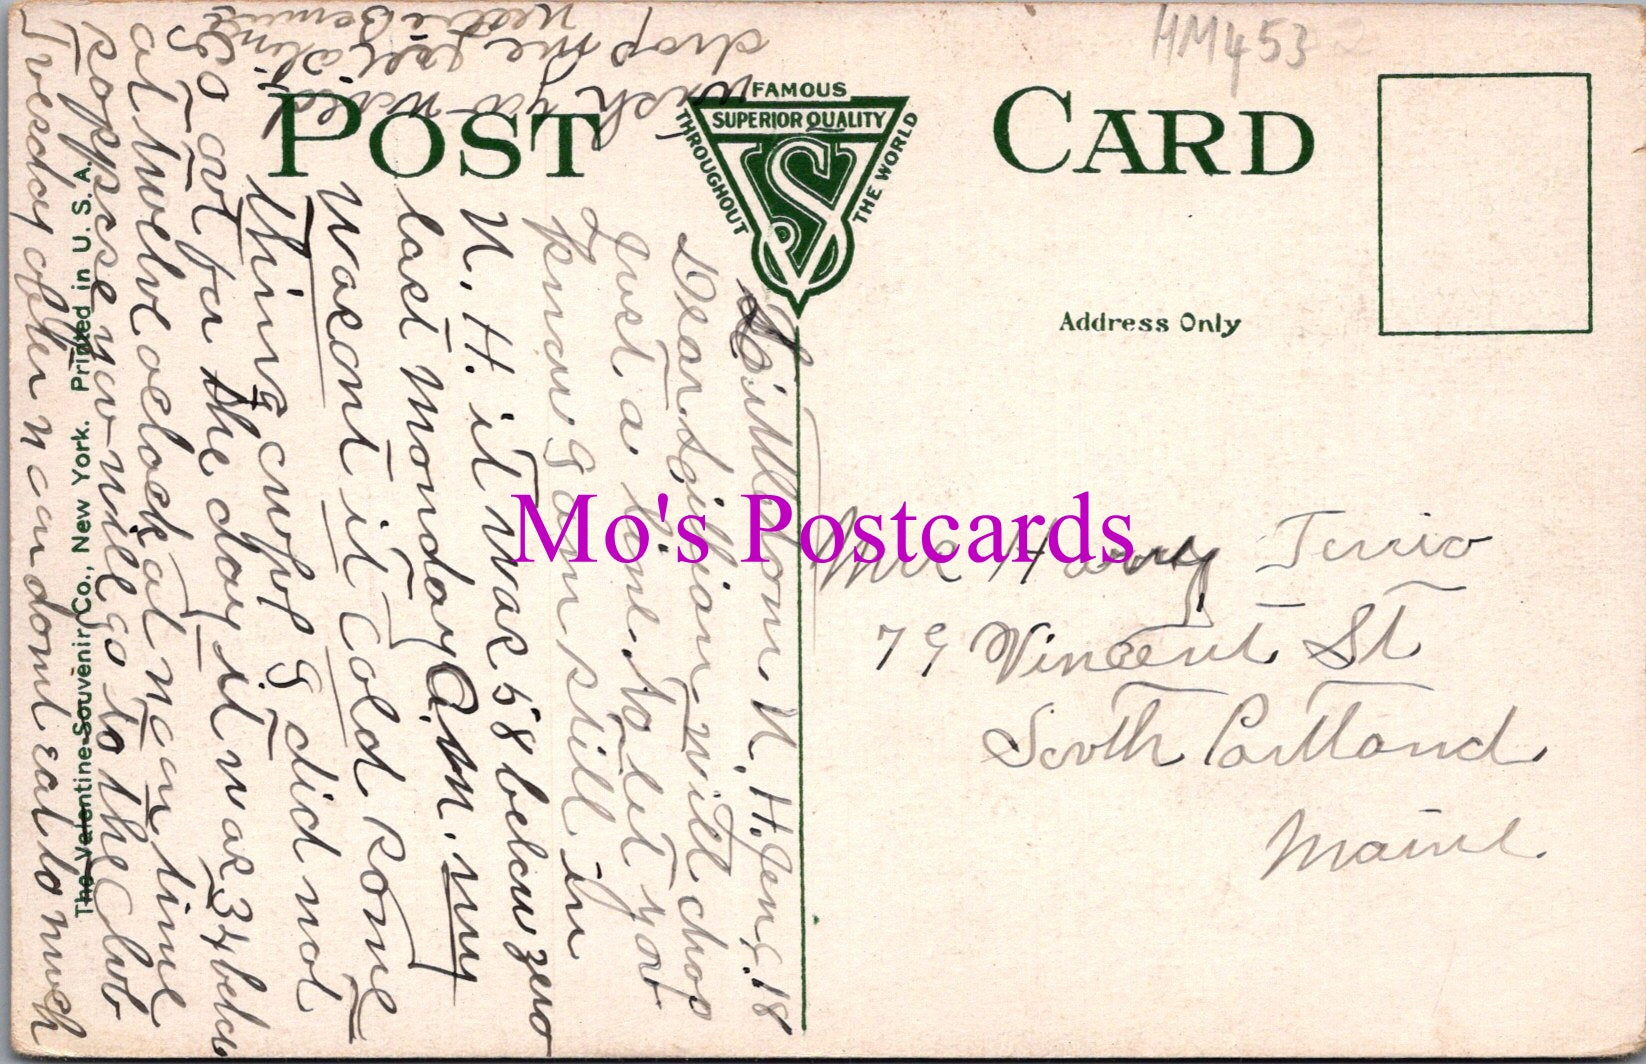 HM453
POST CARD
FAMOUS
SUPERIOR QUALITY
THROUGHOUT
THE WORLD
Address Only
The Valentine-Souvenir Co., New York. Printed in U. S. A.
Mo's Postcards
Littleton N. H. Jen, 18
Dear Lillian will drop
Just a line. to let you
know I am still in
N. H. it was 58 below zero
last monday A.M. my
wasent it Cold some
thing crupf I did not
go out for the day it was 34 below
at twelve oclock at noon time
soppose now will go to the Club
Tuesday after noon dont eat to much
wish you would
drop me
Mrs Harry Terrio
79 Vincent St
South Portland
Maine.